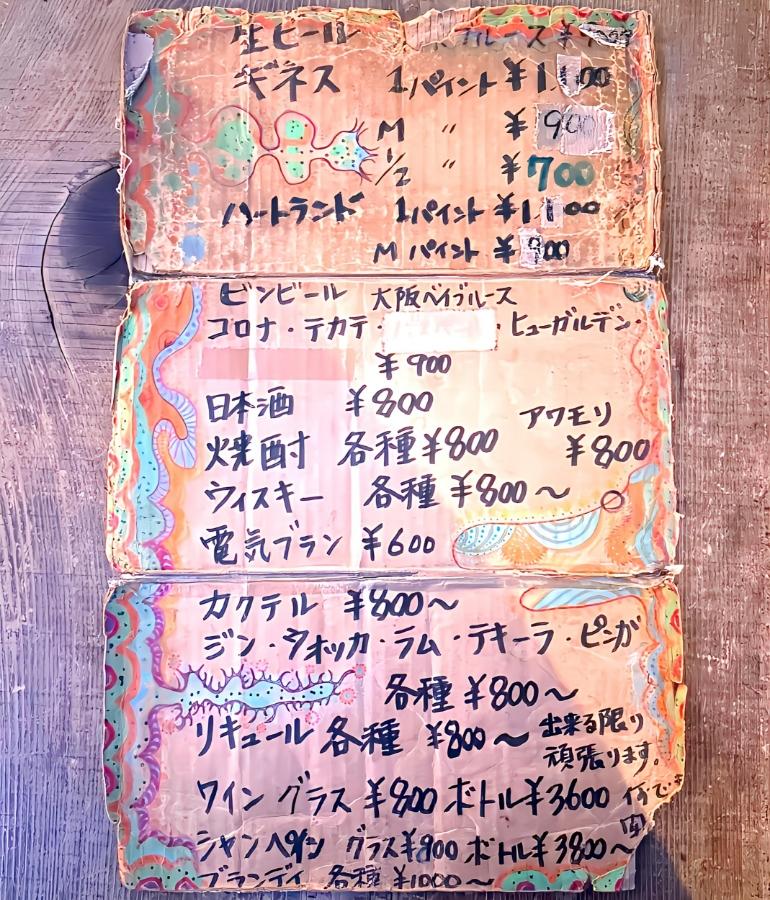 生ビール
ギネス 1パイント ¥1,100
M 〃 ¥900
1/2 〃 ¥700
ハートランド 1パイント ¥1,100
M パイント ¥900
ビンビール 大阪ベイブルース
コロナ・テカテ・ ・ヒューガルデン・
¥900
日本酒 ¥800
アワモリ
焼酎 各種¥800 ¥800
ウィスキー 各種 ¥800〜
電気ブラン ¥600
カクテル ¥800〜
ジン・ウオッカ・ラム・テキーラ・ピンガ
各種 ¥800〜
リキュール 各種 ¥800〜 出来る限り
頑張ります。
ワイン グラス ¥800 ボトル¥3600
シャンペイン グラス¥900 ボトル¥3800〜
ブランディ 各種 ¥1000〜